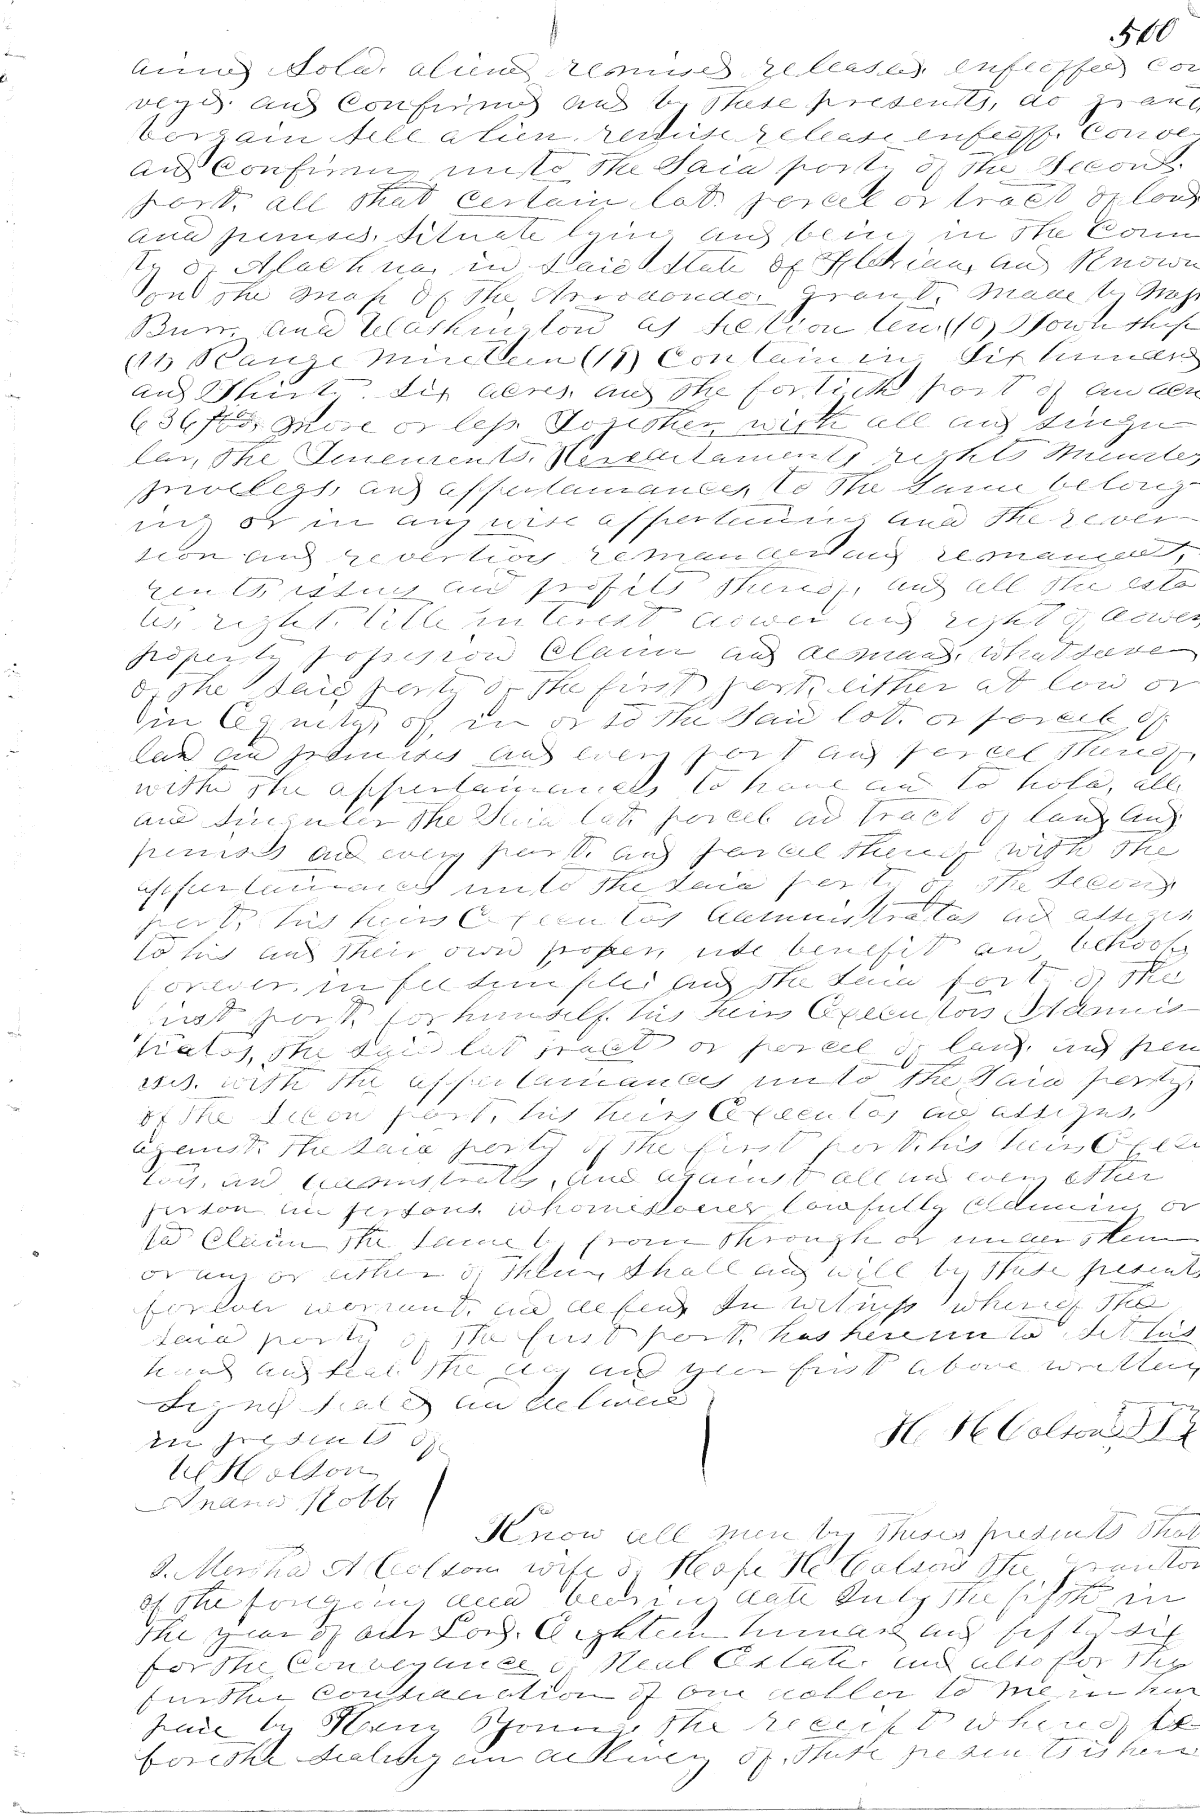 500
ained Sold. aliened remised released. enfeoffed con
veyed. and Confirmed and by these presents, do grant,
bargain sell alien remise release enfeoff. Convey
and Confirm unto the Said party of the Second.
part. all that certain lot. parcel or tract of land
and premises. Situate lying and being in the Coun
ty of Alachua, in Said State of Florida, and Known
on the map of the Arrodondo. grant. made by
Burr. and Washington as Section ten (10) Township
(11) Range nineteen (19) Containing Six hundred
and Thirty. Six acres, and the fortieth part of an acre
636 more or less Together, with all and singu
lar, the Tenements. rights
privelegs, and appertainances, to the same belong
ing or in any wise appertaining and the rever
sion and revertions remander and
rents, issues and profits thereof, and all the esta
tes, right. title interest dower and right of dower,
property possession Claim and demand. whatsoever
of the Said party of the first part, either at law or
in Equity, of, in or to the Said lot. or parcel of
land and premises and every part and parcel thereof,
with the appertainances to have and to hold, all.
and singuler the Said lot. parcel and tract of land, and
premises and every part. and parcel thereof with the
appertainances unto the Said party of the Second.
part, his heirs Executos Administratos and assigns
to his and their own proper, use benefit and, behoof,
forever. in fee simple: and the Said party of the
first part, for himself. his heirs Executors Adminis
tratos, the Said lot tract or parcel of land. and prem
ises. with the appertainances unto the Said party,
of the Secon part, his heirs Executos and assigns.
against. the Said party of the first part. his heirs Execu
tors. and administrators, and against all and every other
person and persons. whomesoever lawfully claiming or
to Claim the same by from through or under them
or any or either of them, Shall and will by these presents
forever warrant. and defend In witness whereof the
Said party of the first part. has hereunto set his
hand and Seal the day and year first above written,
Signed Sealed and delivered
in presents of
H. H. Colson
Know all men by theses presents that
I. Mertha A Colson wife of Hope H. Colson the grantor
of the foregoing deed bearing date July the fifth in
the year of our Lord. Eighteen hundred and fifty six
for the Conveyance of Real Estate. and also for the
further consideration of one doller to me in han
paid by Henry Young, the receipt whereof be
fore the sealing an delivery of. these presents is here